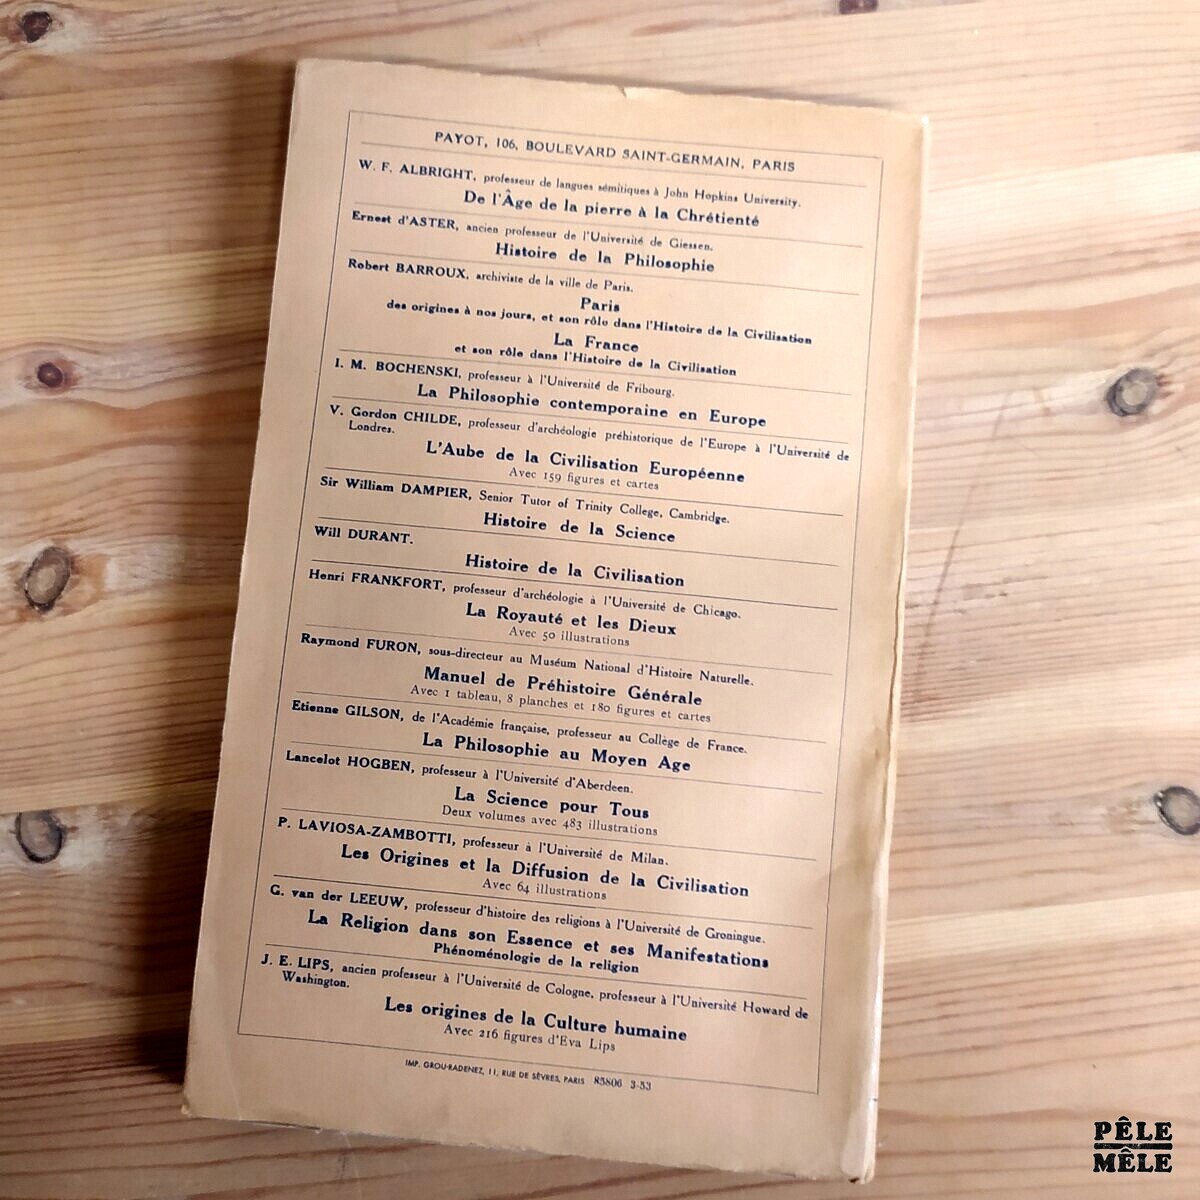 PAYOT, 106, BOULEVARD SAINT-GERMAIN, PARIS
W. F. ALBRIGHT, professeur de langues sémitiques à John Hopkins University.
De l'Âge de la pierre à la Chrétienté
Ernest d'ASTER, ancien professeur de l'Université de Giessen.
Histoire de la Philosophie
Robert BARROUX, archiviste de la ville de Paris.
Paris
des origines à nos jours, et son rôle dans l'Histoire de la Civilisation
La France
et son rôle dans l'Histoire de la Civilisation
I. M. BOCHENSKI, professeur à l'Université de Fribourg.
La Philosophie contemporaine en Europe
V. Gordon CHILDE, professeur d'archéologie préhistorique de l'Europe à l'Université de
Londres.
L'Aube de la Civilisation Européenne
Avec 159 figures et cartes
Sir William DAMPIER, Senior Tutor of Trinity College, Cambridge.
Histoire de la Science
Will DURANT.
Histoire de la Civilisation
Henri FRANKFORT, professeur d'archéologie à l'Université de Chicago.
La Royauté et les Dieux
Avec 50 illustrations
Raymond FURON, sous-directeur au Muséum National d'Histoire Naturelle.
Manuel de Préhistoire Générale
Avec 1 tableau, 8 planches et 180 figures et cartes
Etienne GILSON, de l'Académie française, professeur au Collège de France.
La Philosophie au Moyen Age
Lancelot HOGBEN, professeur à l'Université d'Aberdeen.
La Science pour Tous
Deux volumes avec 483 illustrations
P. LAVIOSA-ZAMBOTTI, professeur à l'Université de Milan.
Les Origines et la Diffusion de la Civilisation
Avec 64 illustrations
G. van der LEEUW, professeur d'histoire des religions à l'Université de Groningue.
La Religion dans son Essence et ses Manifestations
Phénoménologie de la religion
J. E. LIPS, ancien professeur à l'Université de Cologne, professeur à l'Université Howard de
Washington.
Les origines de la Culture humaine
Avec 216 figures d'Eva Lips
IMP. GROU-RADENEZ, 11, RUE DE SÈVRES, PARIS 85806 3-53
PÊLE
MÊLE